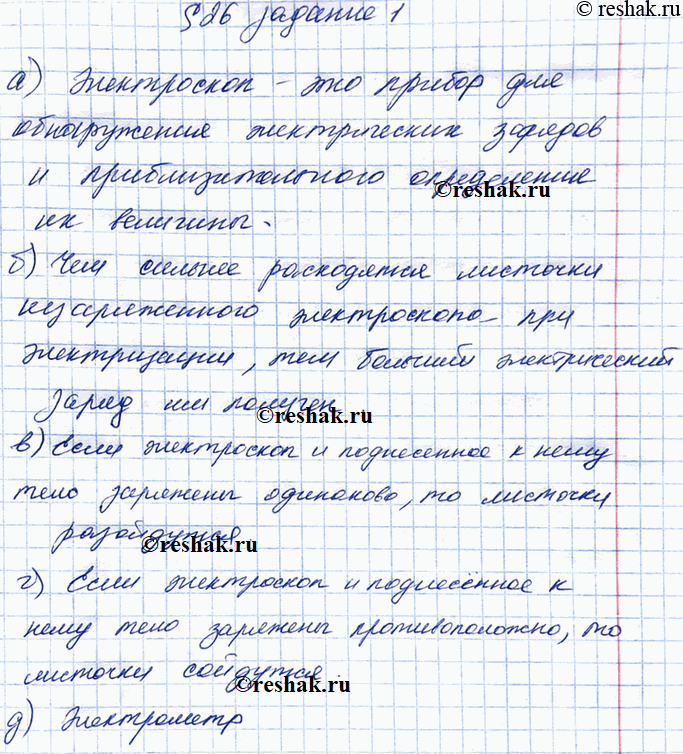 §26 задание 1
©reshak.ru
а) Электроскоп – это прибор для
обнаружения электрических зарядов
и приблизительного определение
©reshak.ru
их величины.
б) Чем сильнее расходятся листочки
незаряженного электроскопа при
электризации, тем больший электрический
заряд им получен
©reshak.ru
в) Если электроскоп и поднесенное к нему
тело заряжены одинаково, то листочки
разойдутся
©reshak.ru
г) Если электроскоп и поднесённое к
нему тело заряжены противоположно, то
листочки сойдутся.
©reshak.ru
д) Электрометр